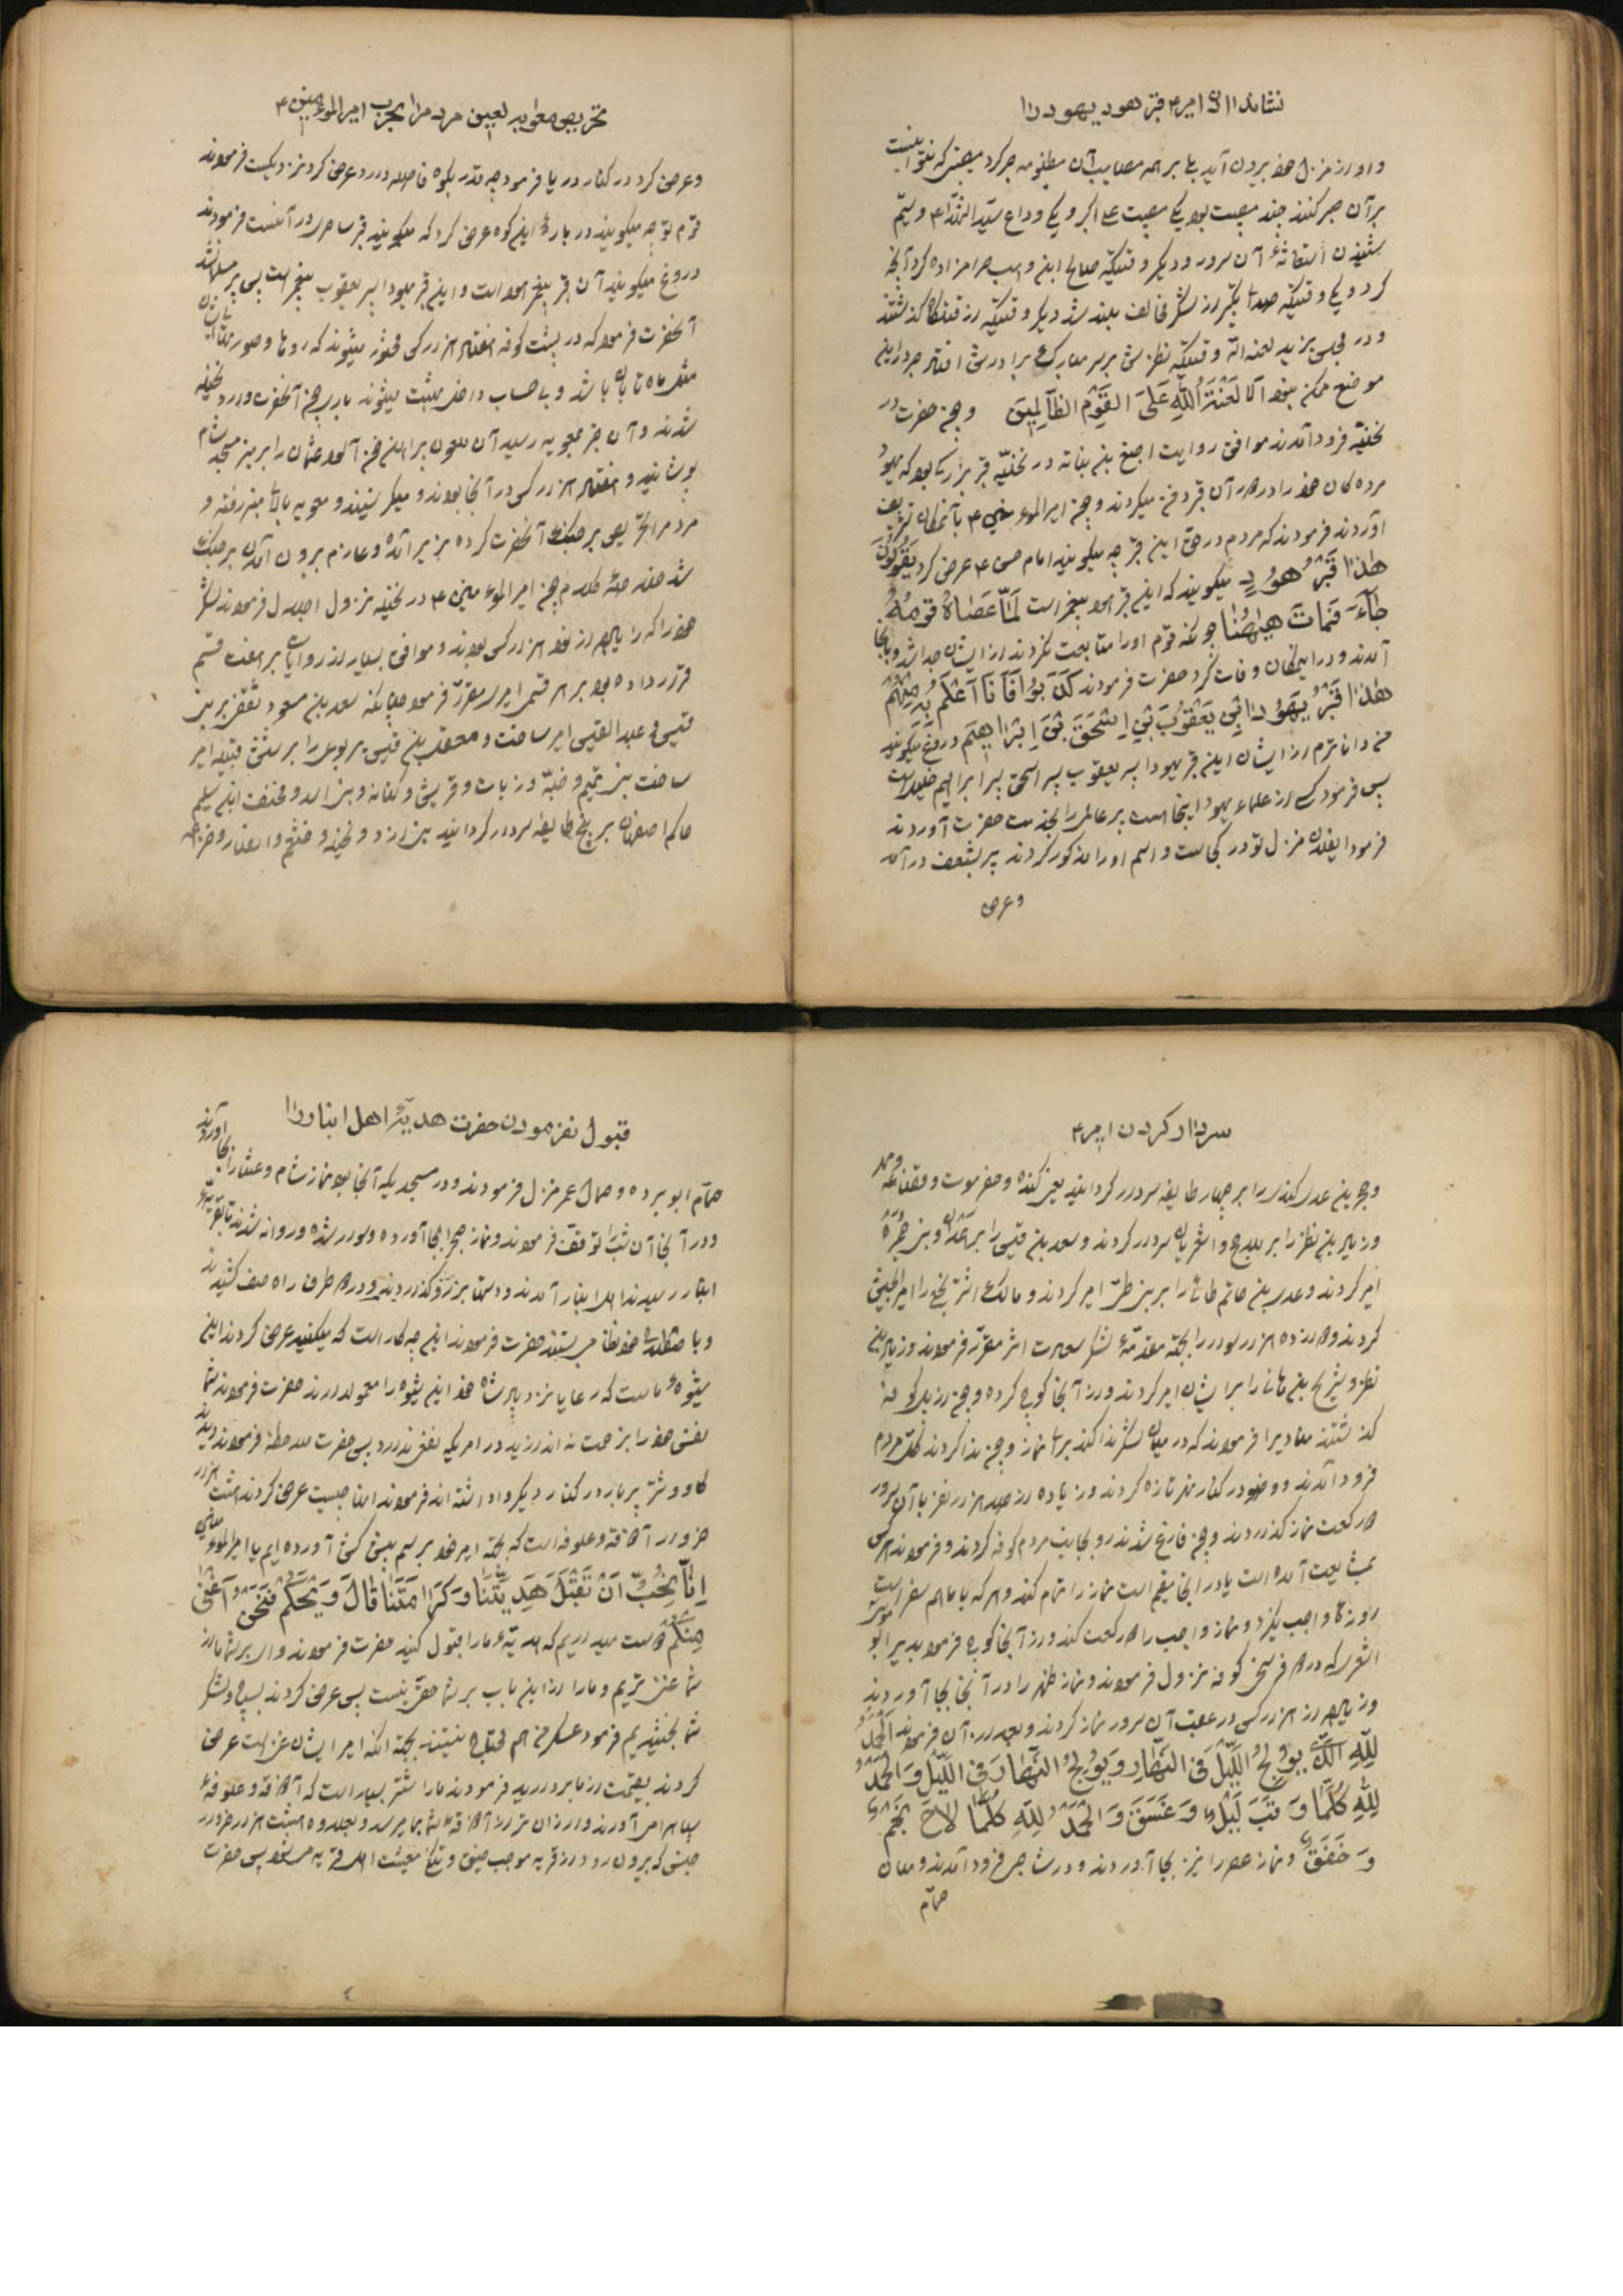 نشان دادن امیر ۴ قبر هود یهودا را
و او را از منزل خود بیرون آید بنا بر همه مصایب آن مظلومه صبر کرد مصیبتی که نتوانست
بر آن صبر کنند چند مصیبت بود یکی مصیبت علی اکبر و یکی وداع سید الشهدا ۴ و سیّم
شنیدن استغاثهٔ آن سرور و دیگر وقتیکه صالح ابن وهب حرامزاده کرد آنچه
کرد و یکی وقتیکه صدای تکبیر از لشکر مخالف بلند شد و دیگر وقتیکه از قتلگاه گذشتند
و در مجلس یزید لعنه الله وقتیکه نظرش بر سر مبارک برادرش افتاد صبر در این
موضع ممکن نبود اَلا لَعْنَةُ اللهِ عَلَی القَوْمِ الظّالِمینَ و چون حضرت در
نخیله فرود آمدند موافق روایت اصبغ بن نباته در نخیله قبر بزرگی بود که یهود
مرده‌گان خود را در دور آن قبر دفن میکردند و چون امیر المؤمنین ۴ بآنمکان تشریف
آوردند فرمودند که مردم در حق این قبر چه میگویند امام حسن ۴ عرض کرد یَقُولُونَ
هٰذا قَبْرُ هُودٍ میگویند که این قبر هود پیغمبر است لَمّا عَصَاهُ قَومُهُ
جآءَ فَمَاتَ هٰیهُنا چونکه قوم او را متابعت نکردند از ایشان جدا شد و باینجا
آمدند و در اینمکان وفات کرد حضرت فرمودند کَذَبُوا فَاَنَا اَعْلَمُ مِنْهُمْ
هٰذا قَبْرُ یَهُودَا بْنِ یَعْقُوبَ بْنِ اِسْحٰقَ بْنِ اِبْراهیمَ دروغ میگویند
من داناترم از ایشان این قبر یهودا پسر یعقوب پسر اسحق پسر ابراهیم خلیل است
پس فرمود کسی از علماء یهود اینجا هست پیر عالمی را بخدمت حضرت آوردند
فرمود ایفلان منزل تو در کجاست و اسم او را مذکور کردند پیر بشعف در آمد
و عرض
تحریص معاویه لعین مردم را بحرب امیر المؤمنین ۴
و عرض کرد در کنار دریا فرمود چه قدر بکوه فاصله دارد عرض کرد نزدیکست فرمودند
قوم تو چه میگویند در بارهٔ این کوه عرض کرد که میگویند قبر ساحری در آنست فرمودند
دروغ میگویند آن قبر پیغمبر هود است و این قبر یهودا پسر یعقوب پیغمبر است پس پیر مسلمان شد
آنحضرت فرمود که در پشت کوفه هفتاد هزار کس محشور میشوند که روها و صورتهای ایشان
مثل ماه تابان باشد و بی حساب داخل بهشت میشوند باری چون آنحضرت وارد نخیله
شدند و آن خبر بمعویه رسید آن ملعون پیراهن خون آلود عثمان را بر منبر مسجد شام
پوشانید و هفتاد هزار کس در آنجا بودند و میگریستند و معویه بالای منبر رفته و
مردم را تحریص بر جنگ آنحضرت کرده بزیر آمده و عازم بیرون آمدن بر جنگ
شد خلاصهٔ کلام چون امیر المؤمنین ۴ در نخیله نزول اجلال فرمودند لشکر
خود را که زیاده از نود هزار کس بودند و موافق بسیار از روایات بر هفت قسم
قرار داده بود بر هر قسمی امیری مقرر فرمود چنانکه سعد بن مسعود ثقفی بر بنی
قیس و عبد القیس امیر ساخت و معقل بن قیس یربوعی را بر شش قبیله امیر
ساخت بنی تمیم و ضبّه و رباب و قریش و کنانه و بنی اسد و مخنف ابن سلیم
حاکم اصفهان بر پنج طایفه سردار گردانید بنی ازد و بجیله و خثعم و انصار و خزاعه
سردار کردن امیر ۴
و حجر بن عدی کندی را بر چهار طایفه سردار گردانید یعنی کنده و حضرموت و قضاعه و مهره
و زیاد بن نظر را بر مذحج و اشعریان سردار کردند و سعد بن قیس را بر همدان و بنی حمره
امیر کردند و عدی بن حاتم طائی را بر بنی طیّ امیر کردند و مالک اشتر نخعی را امیر الجیش
کردند و دوازده هزار سوار را بجهة مقدّمهٔ لشکر نصرت اثر مقرر فرمودند و زیاد بن
نظر و شریح بن هانی را بر ایشان امیر کردند و از آنجا کوچ کرده و چون از پل کوفه
گذشتند منادیرا فرمودند که در میان لشکر ندا کند برای نماز و چون ندا کردند کلّ مردم
فرود آمدند و وضو در کنار نهر تازه کردند و زیاده از صد هزار نفر با آن سرور
دو رکعت نماز گذاردند و چون فارغ شدند رو بجانب مردم کوفه کردند و فرمودند هر کس
بمشایعت آمده است یا در اینجا مقیم است نماز را تمام کند و هر که با ما هم سفر است
روزهٔ واجب نگیرد و نماز واجب را دو رکعت کند و از آنجا کوچ فرمود بدیر ابو موسی
اشعری که در دو فرسخی کوفه نزول فرمودند و نماز ظهر را در آنجا بجا آوردند
و زیاده از هزار کس در عقب آن سرور نماز کردند و بعد از آن فرمودند اَلْحَمْدُ
لِلّهِ الَّذی یُولِجُ اللَّیْلَ فِی النَّهارِ وَ یُولِجُ النَّهارَ فِی اللَّیْلِ وَ الْحَمْدُ
لِلّهِ کُلَّمَا وَقَبَ لَیْلٌ وَ غَسَقَ وَ الْحَمْدُ لِلّهِ کُلَّمَا لاحَ نَجْمٌ
وَ خَفَقَ و نماز عصر را نیز بجا آوردند و در شاطی فرود آمدند و میان
حمّام
قبول نفرمودن حضرت هدیهٔ اهل انبار را
حمّام ابو برده و حمام عمر منزل فرمودند و در مسجدیکه آنجا بود نماز شام و عشا را بجا آوردند
و در آنجا آن شب را توقف فرمودند و نماز صبح را بجا آورده و سوار شده و روانه شدند تا بقریهٔ
انبار رسیدند اهل انبار آمدند و دستها بر رو گذاردند و در دو طرف راه صف کشیدند
حضرت فرمودند این چه کار است که میکنید عرض کردند این
شیوهٔ ماست که رعایا نزد پادشاه خود این شیوه را معمول دارند حضرت فرمودند شما
نفس خود را بزحمت می اندازید در امریکه نفعی ندارد پس حضرت ملاحظه فرمودند دیدند
گاو و شتر پر بار در کنار دیگر واداشته اند فرمودند اینها چیست عرض کردند هشت هزار
خروار آذوقه و علوفه است که بجهة امیر خود برسم پیشکش آورده ایم یا امیر المؤمنین
اِنّا نُحِبُّ اَنْ تَقْبَلَ هَدِیَّتَنا وَ کَرامَتَنا قالَ وَیْحَکُمْ فَنَحْنُ اَغْنٰی
مِنْکُمْ دوست میداریم که هدیهٔ ما را قبول کنید حضرت فرمودند وای بر شما ما از
شما غنی تریم و ما را از این باب بر شما حقی نیست پس عرض کردند بسپاه و لشکر
شما بخشیدیم فرمود عسکر من هم محتاج نیستند بجهة آنکه امیر ایشان غنی است عرض
کردند بقیمت از ما بردارید فرمودند ما را شتر بسیار است که آذوقه و علوفهٔ
بسیار آورند و ارزان تر از آذوقهٔ شما بما میرسد و بعلاوه هشت هزار خروار
جنس که بیرون رود از قریه موجب ضیق و تنگی معیشت اهل قریه میشود پس حضرت